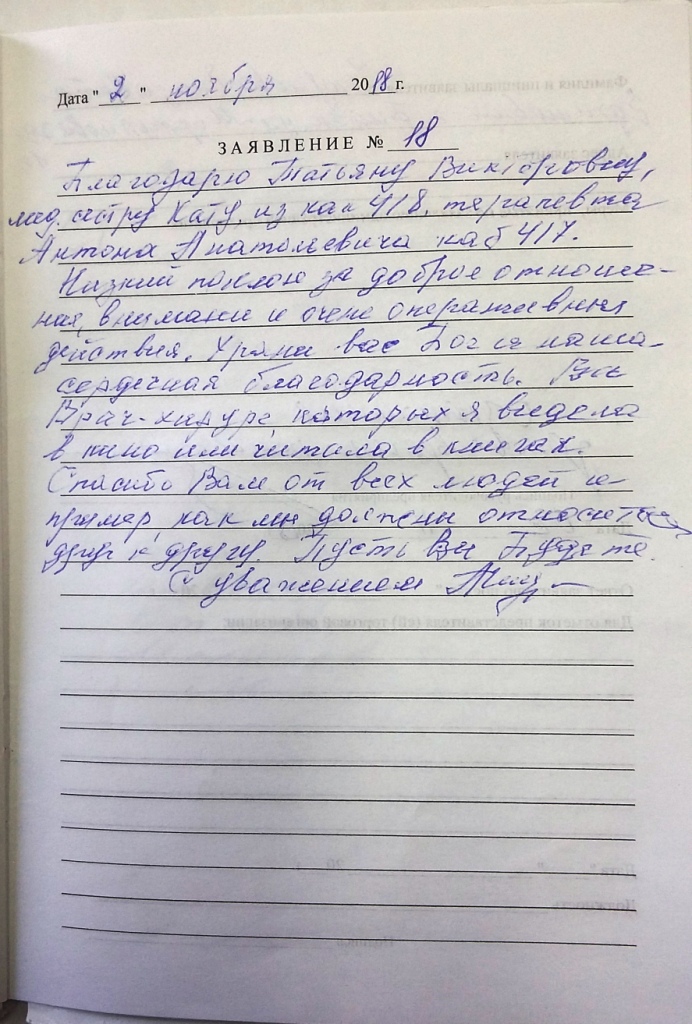 Дата "2" ноября 2018 г.
ЗАЯВЛЕНИЕ № 18
Благодарю Татьяну Викторовну,
мед. сестру Кату, из каб 418, терапевта
Антона Анатолиевича каб 417.
Низкий поклон за доброе отноше-
ния, внимание и очень оперативные
действия. Храни вас Бог и наша
сердечная благодарность. Вы
Врач-хирург которых я видела
в кино или читала в книгах.
Спасибо Вам от всех людей и
пример, как мы должны относиться
друг к другу. Пусть вы Будете.
С уважением